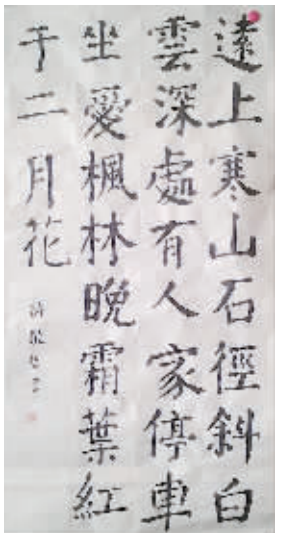 遠上寒山石徑斜白
雲深處有人家停車
坐愛楓林晚霜葉紅
于二月花